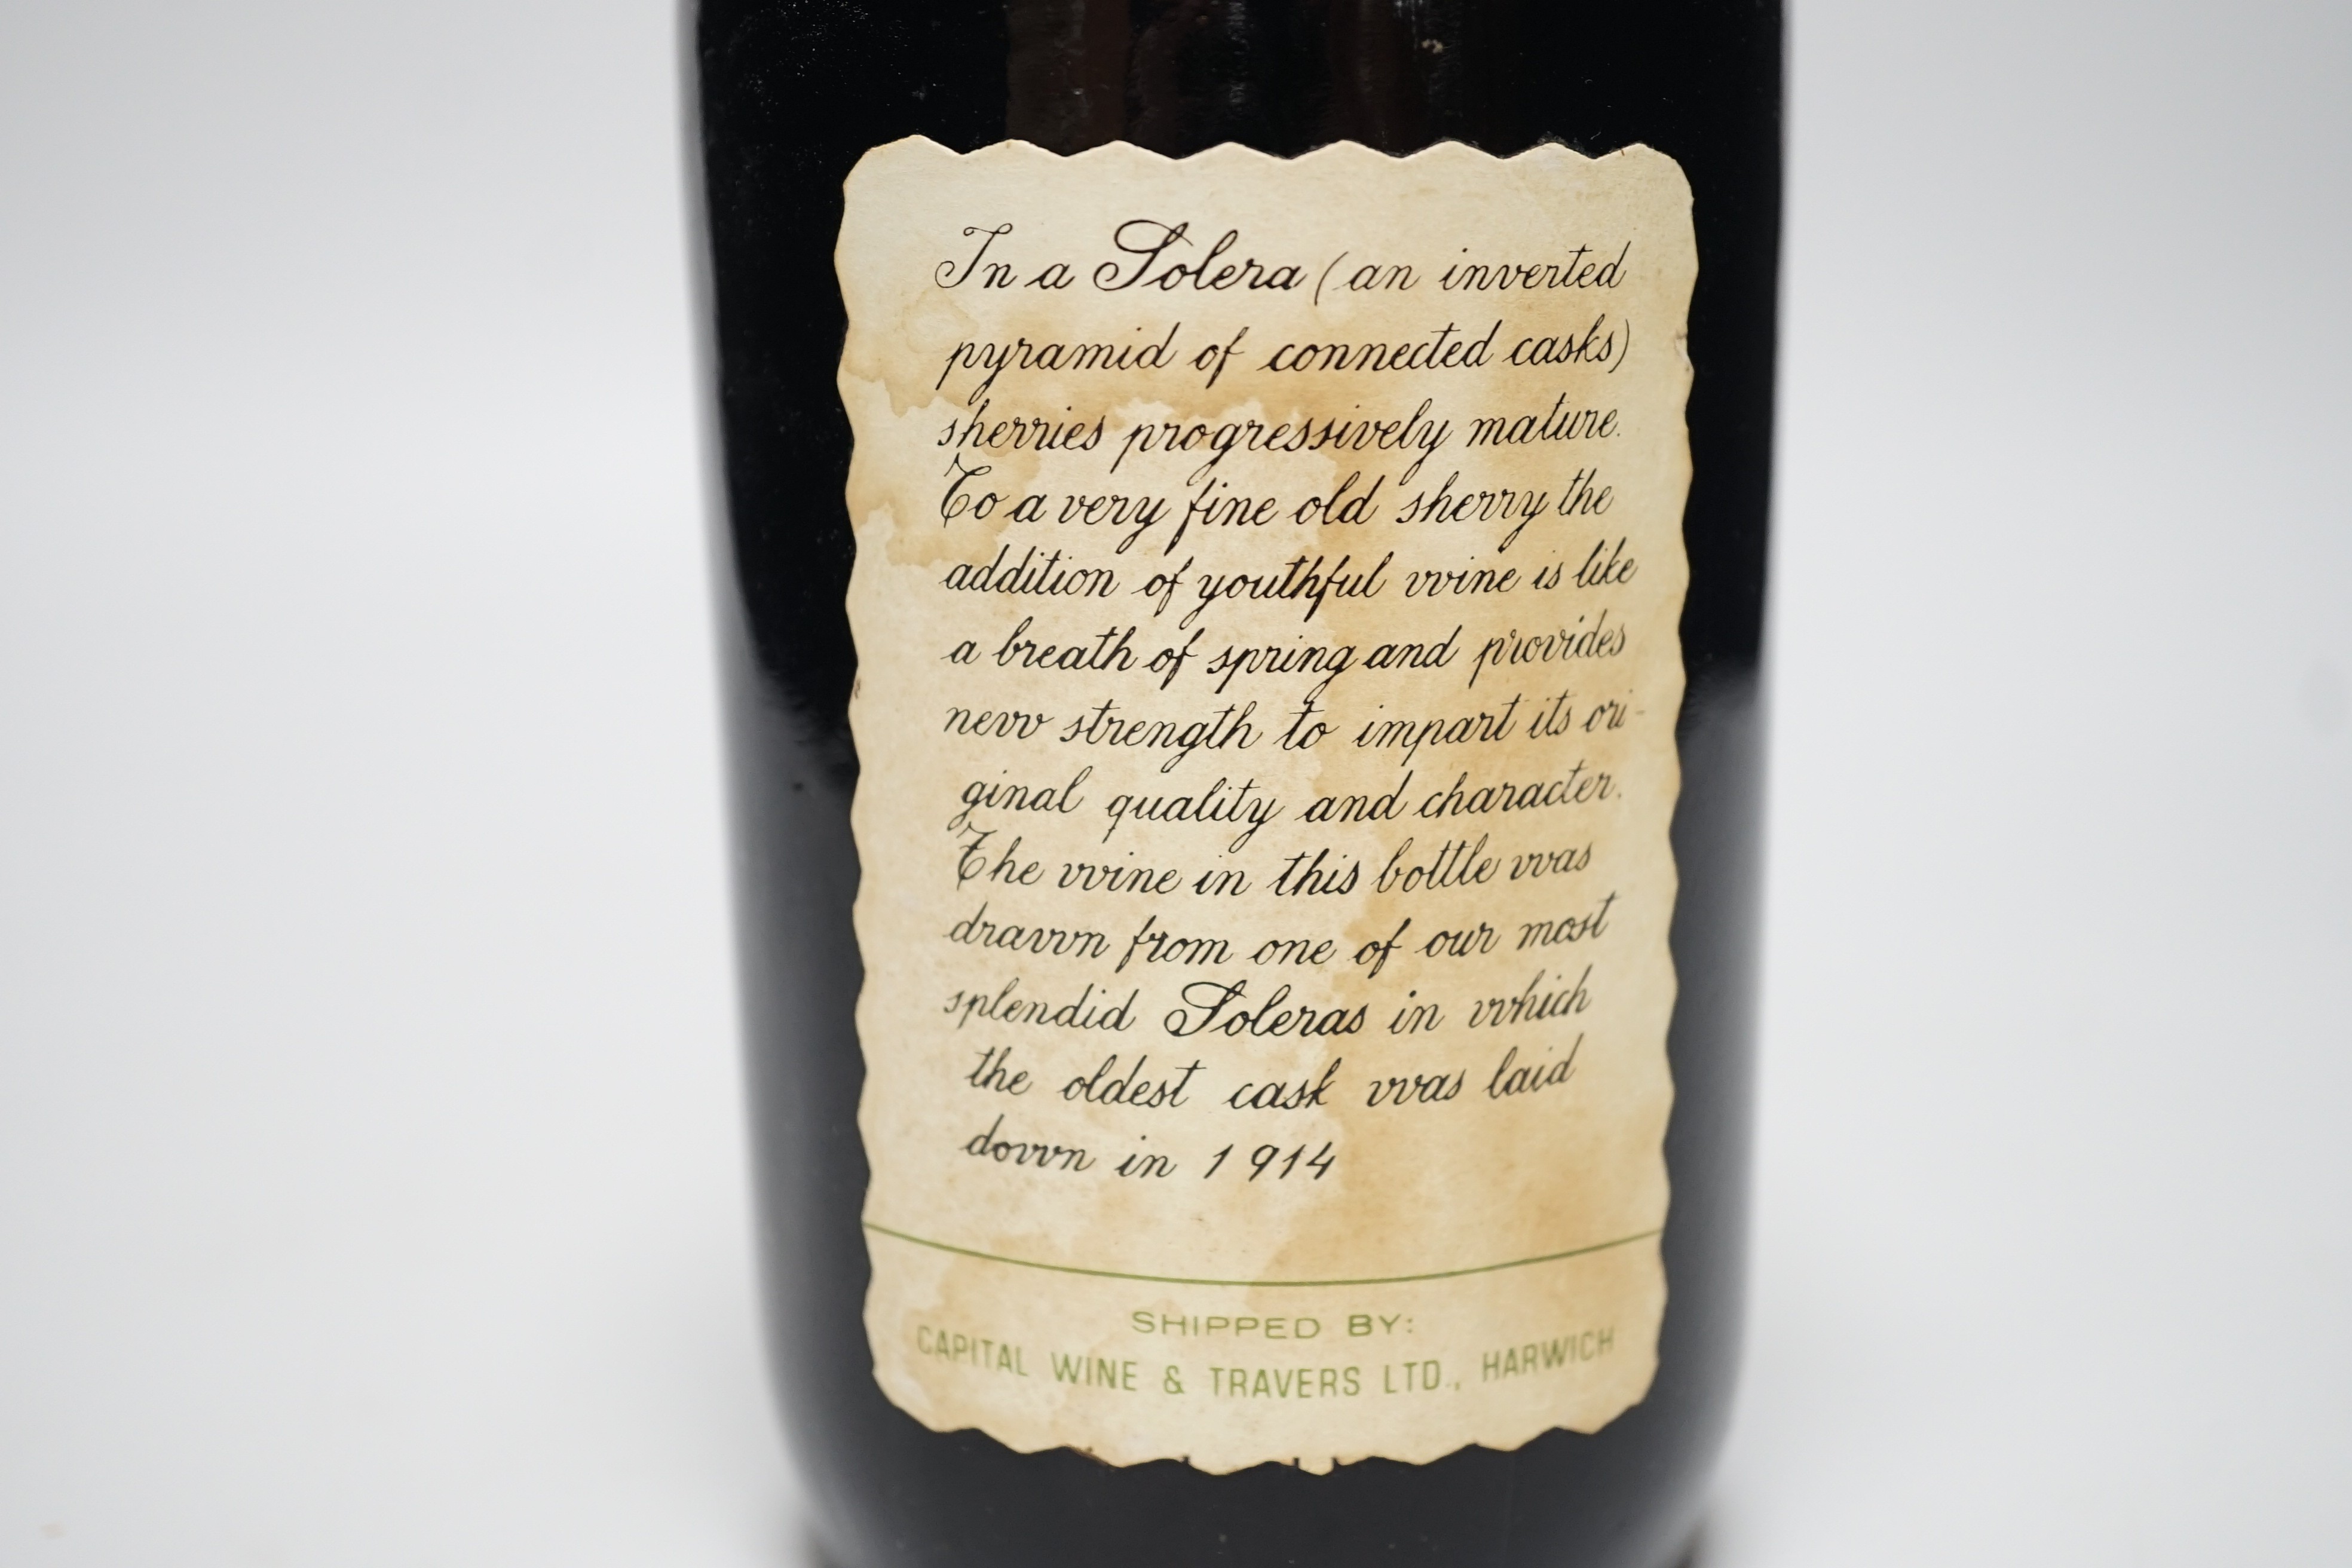 In a Solera (an inverted
pyramid of connected casks)
sherries progressively mature.
To a very fine old sherry the
addition of youthful wine is like
a breath of spring and provides
new strength to impart its ori-
ginal quality and character.
The wine in this bottle was
drawn from one of our most
splendid Soleras in which
the oldest cask was laid
down in 1914
SHIPPED BY:
CAPITAL WINE & TRAVERS LTD., HARWICH